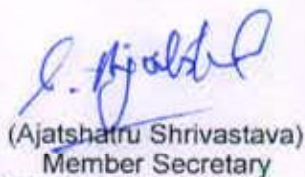 (Ajatshatru Shrivastava)
Member Secretary